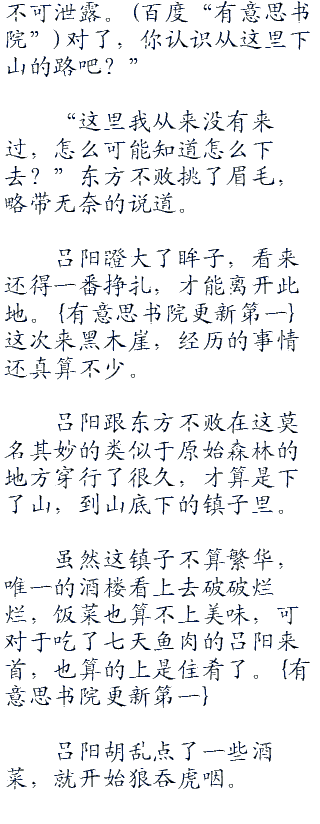 不可泄露。(百度“有意思书
院”)对了，你认识从这里下
山的路吧？”
“这里我从来没有来
过，怎么可能知道怎么下
去？”东方不败挑了眉毛，
略带无奈的说道。
吕阳瞪大了眸子，看来
还得一番挣扎，才能离开此
地。{有意思书院更新第一}
这次来黑木崖，经历的事情
还真算不少。
吕阳跟东方不败在这莫
名其妙的类似于原始森林的
地方穿行了很久，才算是下
了山，到山底下的镇子里。
虽然这镇子不算繁华，
唯一的酒楼看上去破破烂
烂，饭菜也算不上美味，可
对于吃了七天鱼肉的吕阳来
首，也算的上是佳肴了。{有
意思书院更新第一}
吕阳胡乱点了一些酒
菜，就开始狼吞虎咽。